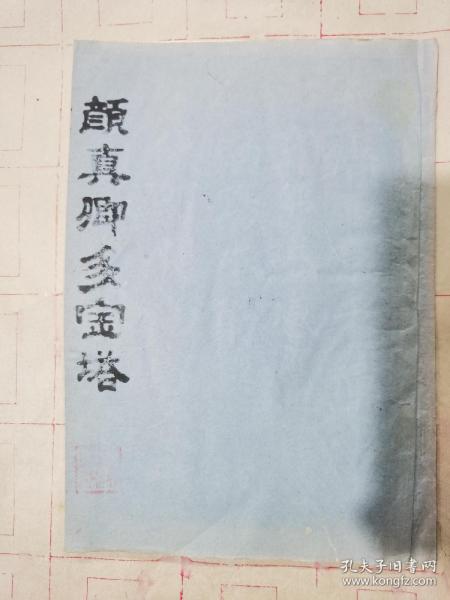 颜真卿多宝塔
孔夫子旧书网
www.kongfz.com